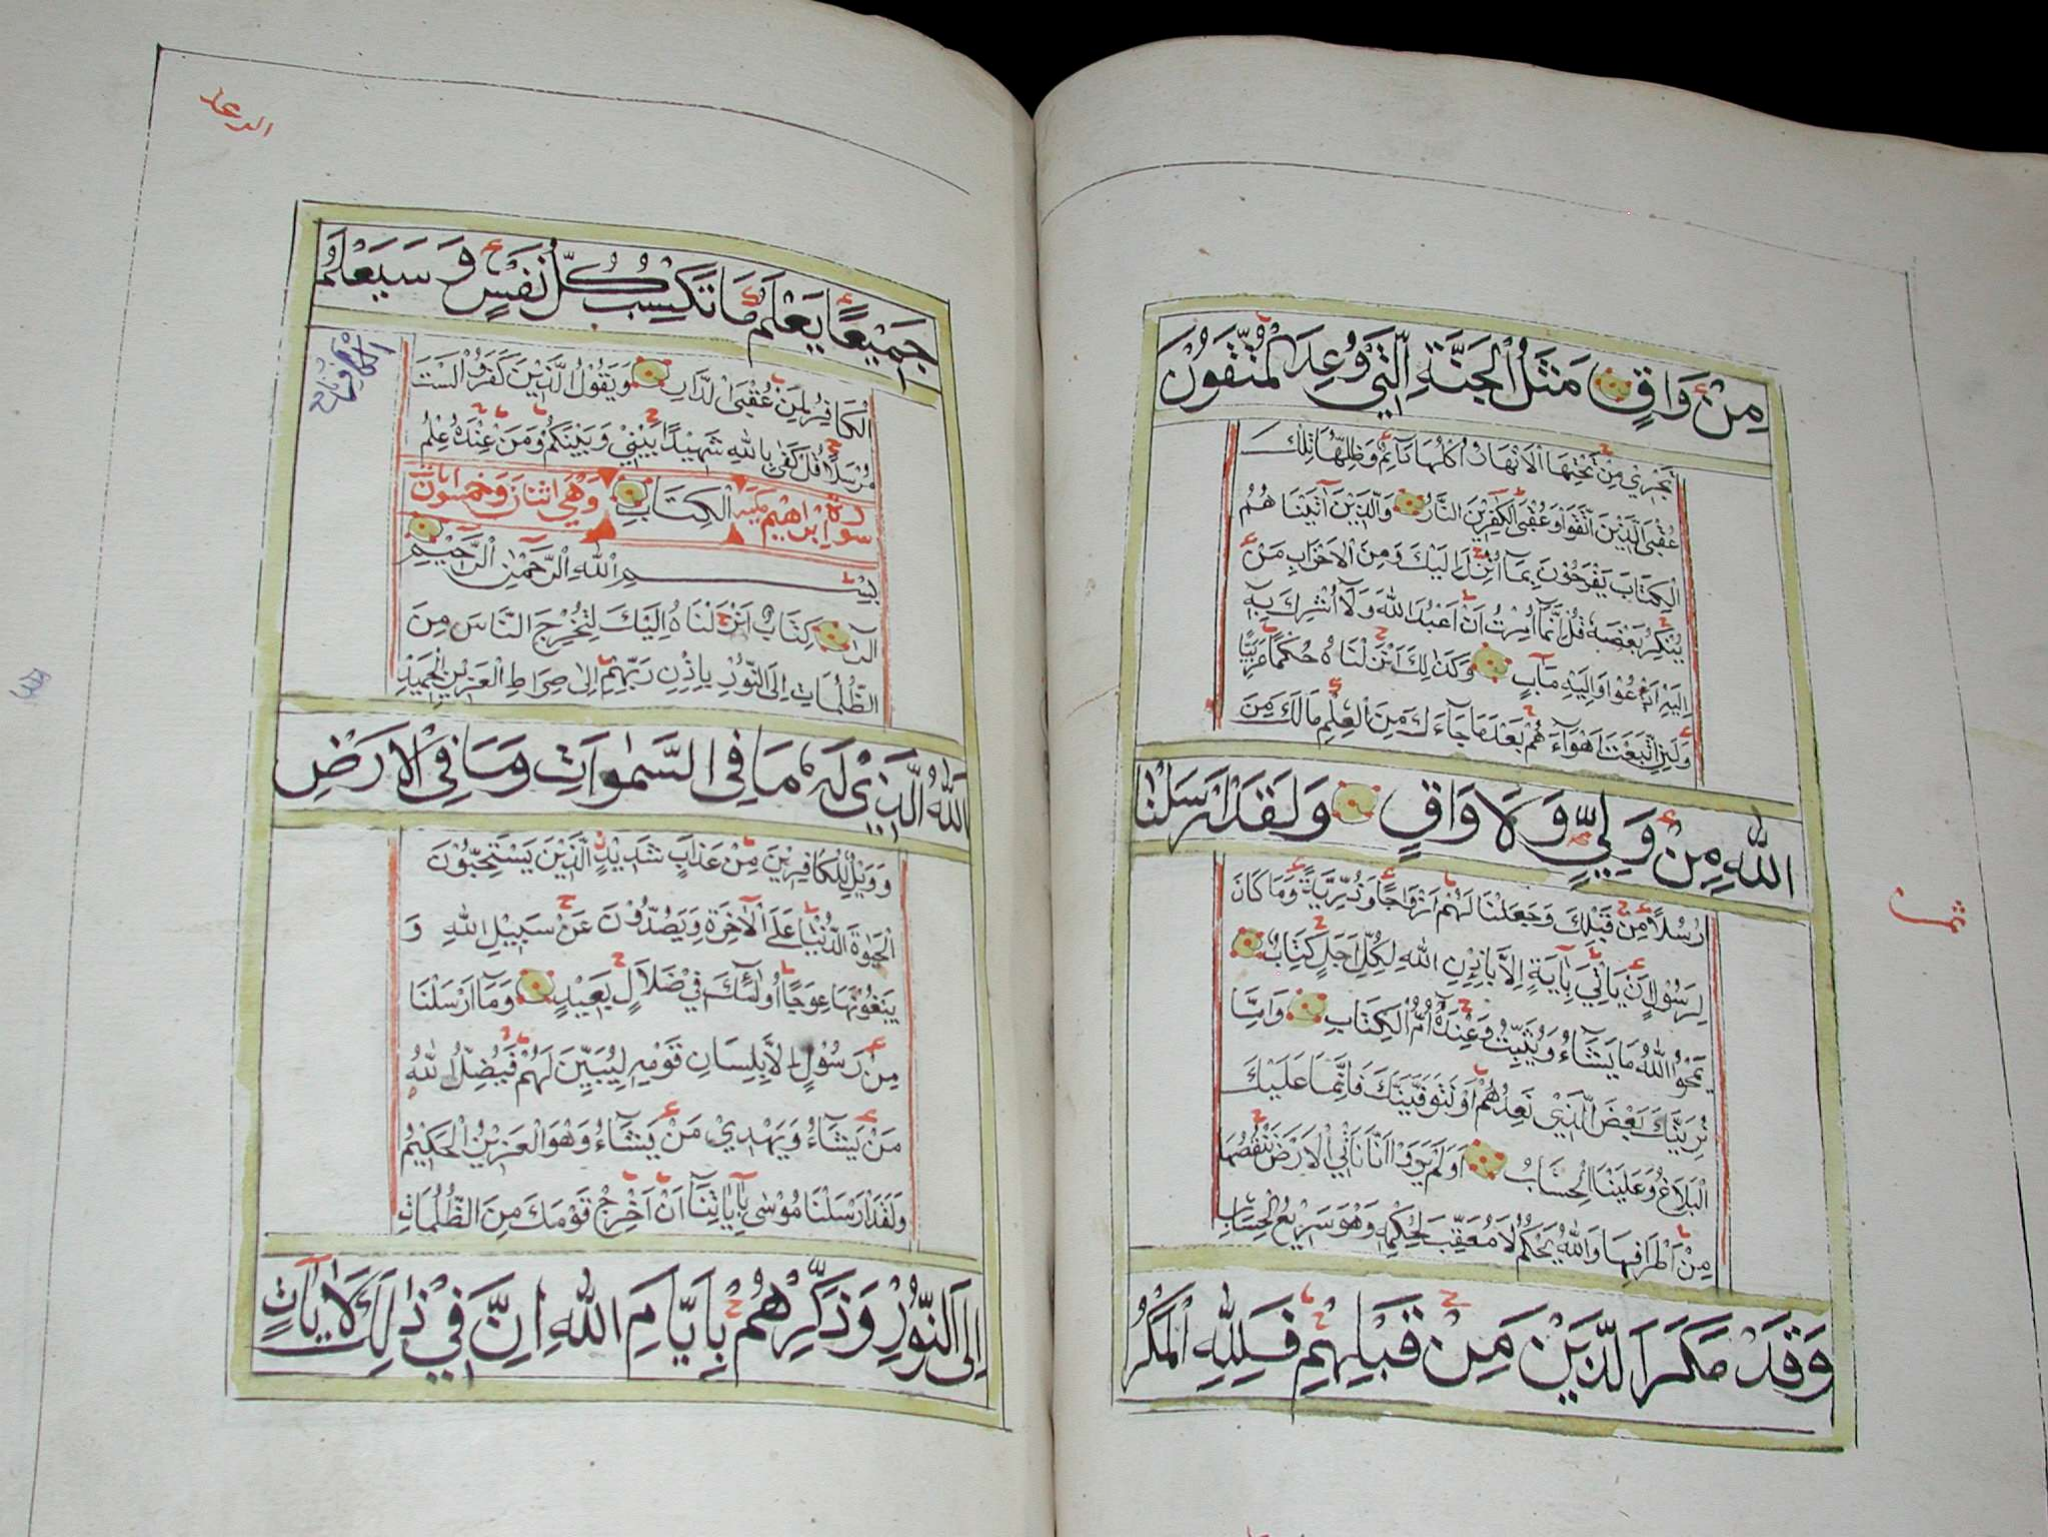 مِنْ وَاقٍ مَثَلُ الْجَنَّةِ الَّتِي وُعِدَ الْمُتَّقُونَ
تَجْرِي مِنْ تَحْتِهَا الْاَنْهَارُ اُكُلُهَا دَآئِمٌ وَظِلُّهَا تِلْكَ
عُقْبَى الَّذِيْنَ اتَّقَوْا وَعُقْبَى الْكٰفِرِيْنَ النَّارُ وَالَّذِيْنَ اٰتَيْنَا هُمُ
الْكِتَابَ يَفْرَحُوْنَ بِمَا اُنْزِلَ اِلَيْكَ وَمِنَ الْاَحْزَابِ مَنْ
يُنْكِرُ بَعْضَهُ قُلْ اِنَّمَا اُمِرْتُ اَنْ اَعْبُدَ اللّٰهَ وَلَا اُشْرِكَ بِهِ
اِلَيْهِ اَدْعُوْا وَاِلَيْهِ مَآبِ وَكَذٰلِكَ اَنْزَلْنَاهُ حُكْمًا عَرَبِيًّا
وَلَئِنِ اتَّبَعْتَ اَهْوَآءَ هُمْ بَعْدَ مَا جَآءَكَ مِنَ الْعِلْمِ مَا لَكَ مِنَ
اللّٰهِ مِنْ وَلِيٍّ وَلَا وَاقٍ وَلَقَدْ اَرْسَلْنَا
رُسُلًا مِنْ قَبْلِكَ وَجَعَلْنَا لَهُمْ اَزْوَاجًا وَذُرِّيَّةً وَمَا كَانَ
لِرَسُوْلٍ اَنْ يَأْتِيَ بِاٰيَةٍ اِلَّا بِاِذْنِ اللّٰهِ لِكُلِّ اَجَلٍ كِتَابٌ
يَمْحُوا اللّٰهُ مَا يَشَآءُ وَيُثْبِتُ وَعِنْدَهُ اُمُّ الْكِتَابِ وَاِمَّا
نُرِيَنَّكَ بَعْضَ الَّذِيْ نَعِدُهُمْ اَوْ نَتَوَفَّيَنَّكَ فَاِنَّمَا عَلَيْكَ
الْبَلَاغُ وَعَلَيْنَا الْحِسَابُ اَوَلَمْ يَرَوْا اَنَّا نَأْتِي الْاَرْضَ نَنْقُصُهَا
مِنْ اَطْرَافِهَا وَاللّٰهُ يَحْكُمُ لَا مُعَقِّبَ لِحُكْمِهِ وَهُوَ سَرِيْعُ الْحِسَابِ
وَقَدْ مَكَرَ الَّذِيْنَ مِنْ قَبْلِهِمْ فَلِلّٰهِ الْمَكْرُ
ثمن
الرعد
جَمِيْعًا يَعْلَمُ مَا تَكْسِبُ كُلُّ نَفْسٍ وَ سَيَعْلَمُ
الْكَافِرُ لِمَنْ عُقْبَى الدَّارِ وَيَقُوْلُ الَّذِيْنَ كَفَرُوْا لَسْتَ
مُرْسَلًا قُلْ كَفٰى بِاللّٰهِ شَهِيْدًا بَيْنِيْ وَبَيْنَكُمْ وَمَنْ عِنْدَهُ عِلْمُ
الْكِتَابِ
سورة ابراهيم مكية وهي اثنان وخمسون ايات
بِسْمِ اللّٰهِ الرَّحْمٰنِ الرَّحِيْمِ
الٓرٰ كِتَابٌ اَنْزَلْنَاهُ اِلَيْكَ لِتُخْرِجَ النَّاسَ مِنَ
الظُّلُمَاتِ اِلَى النُّوْرِ بِاِذْنِ رَبِّهِمْ اِلٰى صِرَاطِ الْعَزِيْزِ الْحَمِيْدِ
اللّٰهِ الَّذِيْ لَهُ مَا فِى السَّمٰوَاتِ وَمَا فِى الْاَرْضِ
وَوَيْلٌ لِلْكَافِرِيْنَ مِنْ عَذَابٍ شَدِيْدٍ الَّذِيْنَ يَسْتَحِبُّوْنَ
الْحَيٰوةَ الدُّنْيَا عَلَى الْاٰخِرَةِ وَيَصُدُّوْنَ عَنْ سَبِيْلِ اللّٰهِ وَ
يَبْغُوْنَهَا عِوَجًا اُولٰئِكَ فِيْ ضَلَالٍ بَعِيْدٍ وَمَا اَرْسَلْنَا
مِنْ رَسُوْلٍ اِلَّا بِلِسَانِ قَوْمِهِ لِيُبَيِّنَ لَهُمْ فَيُضِلُّ اللّٰهُ
مَنْ يَشَآءُ وَيَهْدِيْ مَنْ يَشَآءُ وَهُوَ الْعَزِيْزُ الْحَكِيْمُ
وَلَقَدْ اَرْسَلْنَا مُوْسٰى بِاٰيَاتِنَا اَنْ اَخْرِجْ قَوْمَكَ مِنَ الظُّلُمَاتِ
اِلَى النُّوْرِ وَذَكِّرْهُمْ بِاَيَّامِ اللّٰهِ اِنَّ فِيْ ذٰلِكَ لَاٰيَاتٍ